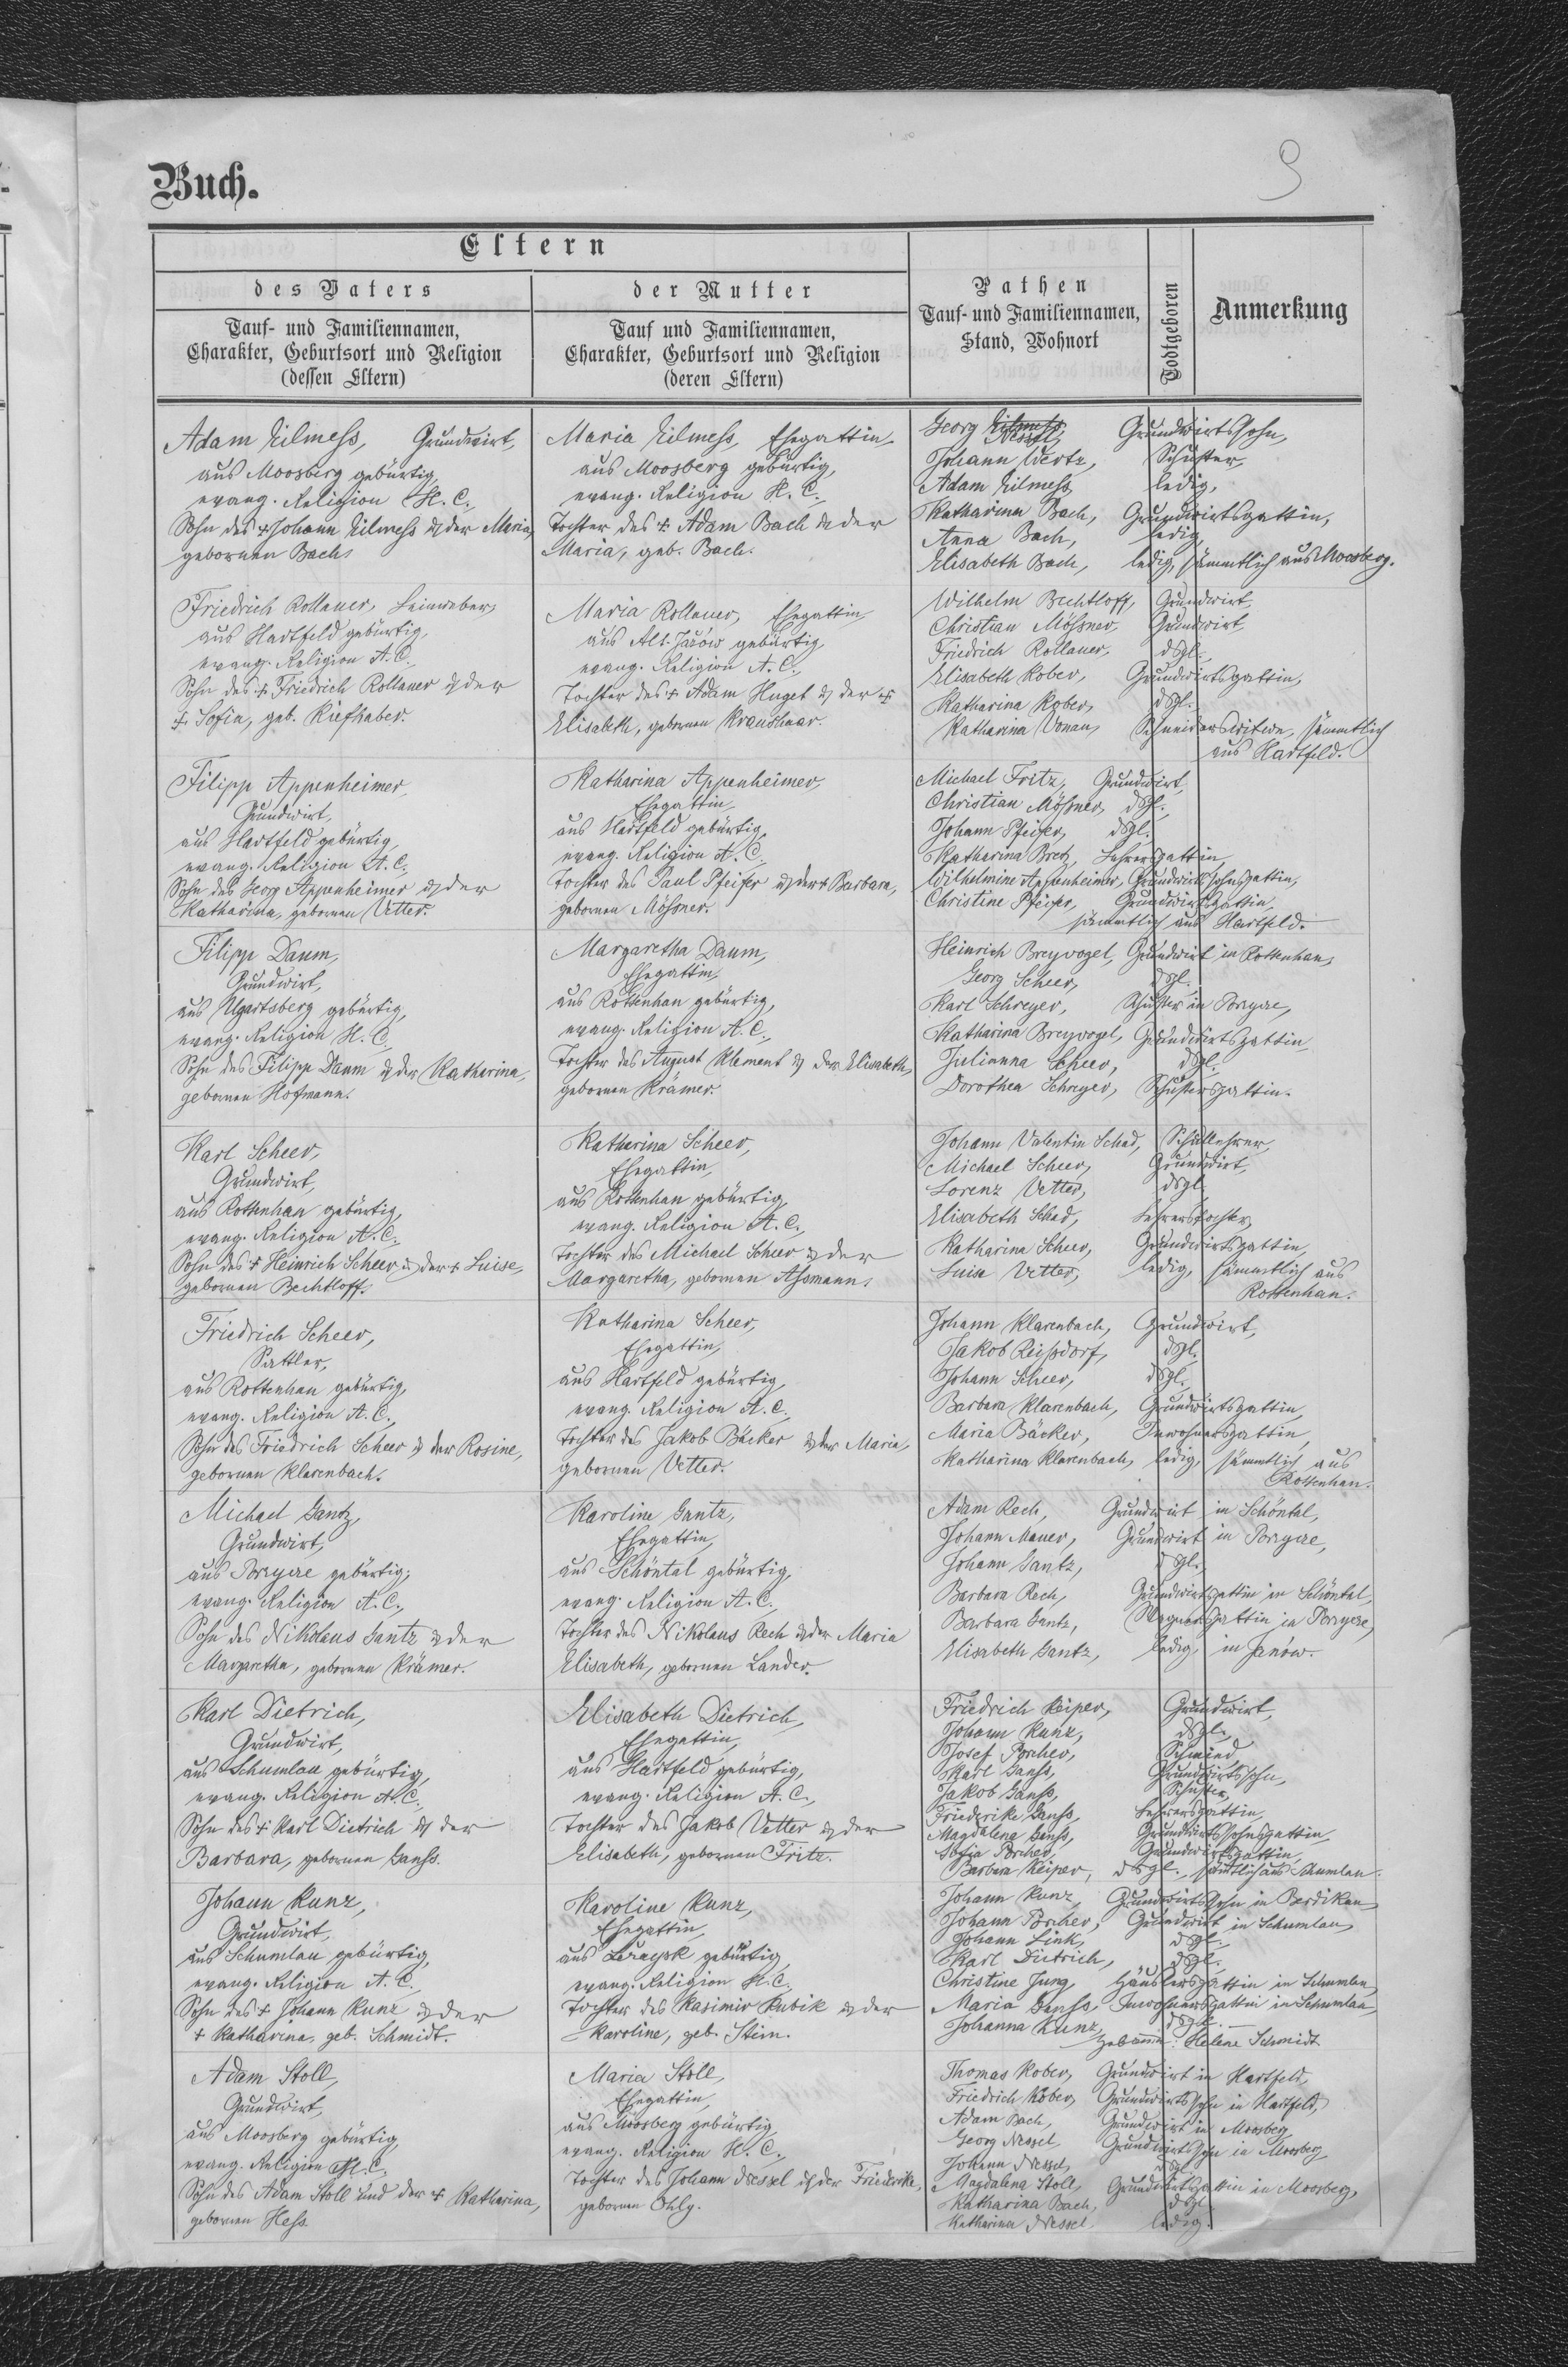 Buch.
9
Eltern
des Vaters
der Mutter
Pathen
Tauf- und Familiennamen,
Stand, Wohnort
Todtgeboren
Anmerkung
Tauf- und Familiennamen,
Charakter, Geburtsort und Religion
(dessen Eltern)
Tauf und Familiennamen,
Charakter, Geburtsort und Religion
(deren Eltern)
Adam Eilmess, Grundwirt,
aus Moosberg gebürtig,
evang. Religion H. C.
Sohn des + Johann Eilmess & der Maria,
gebornen Bach.
Maria Eilmess, Ehegattin,
aus Moosberg gebürtig,
evang. Religion H. C.,
Tochter des + Adam Bach & der
Maria, geb. Bach.
Georg Nessel, Grundwirtssohn,
Johann Wertz, Schuster,
Adam Eilmess, ledig,
Katharina Bach, Grundwirtsgattin,
Anna Bach, ledig,
Elisabeth Bach, ledig, sämmtlich aus Moosberg.
Friedrich Rollauer, Leinweber,
aus Hartfeld gebürtig,
evang. Religion A. C.
Sohn des + Friedrich Rollauer & der
+ Sofia, geb. Kiefhaber.
Maria Rollauer, Ehegattin
aus Alt-Jazów gebürtig,
evang. Religion A. C.,
Tochter des + Adam Huget & der +
Elisabeth, gebornen Kraushaar.
Wilhelm Bechtloff, Grundwirt,
Christian Mössner, Grundwirt
Friedrich Rollauer, dsgl.
Elisabeth Kober, Grundwirtsgattin,
Katharina Kober, dsgl.
Katharina Vonau, Schneiderswitwe, sämmtlich
aus Hartfeld.
Filipp Appenheimer,
Grundwirt,
aus Hartfeld gebürtig,
evang. Religion A. C.
Sohn des Georg Appenheimer & der
Katharina, gebornen Vetter.
Katharina Appenheimer,
Ehegattin,
aus Hartfeld gebürtig,
evang. Religion A. C.
Tochter des Paul Pfeifer & der + Barbara,
gebornen Mössner.
Michael Fritz, Grundwirt,
Christian Mössner, dsgl.,
Johann Pfeifer, dsgl.
Katharina Bretz, Lehrersgattin
Wilhelmine Appenheimer, Grundwirtssohnsgattin,
Christine Pfeifer, Grundwirtsgattin,
sämmtlich aus Hartfeld.
Filipp Daum,
Grundwirt,
aus Ugartsberg gebürtig,
evang. Religion H. C.
Sohn des Filipp Daum & der Katharina,
gebornen Hofmann.
Margaretha Daum,
Ehegattin,
aus Rottenhan gebürtig,
evang. Religion A. C.,
Tochter des August Klement & der Elisabeth,
gebornen Krämer.
Heinrich Breyvogel, Grundwirt in Rottenhan,
Georg Scheer, dsgl.
Karl Schreyer, Schuster in Porzycze,
Katharina Breyvogel, Grundwirtsgattin,
Julianna Scheer, dsgl.
Dorothea Schreyer, Schustersgattin.
Karl Scheer,
Grundwirt,
aus Rottenhan gebürtig,
evang. Religion A. C.
Sohn des + Heinrich Scheer & der + Luise,
gebornen Bechtloff.
Katharina Scheer,
Ehegattin,
aus Rottenhan gebürtig,
evang. Religion A. C.
Tochter des Michael Scheer & der
Margaretha, gebornen Assmann.
Johann Valentin Schad, Schullehrer,
Michael Scheer, Grundwirt,
Lorenz Vetter, dsgl.
Elisabeth Schad, Lehrerstochter,
Katharina Scheer, Grundwirtsgattin,
Luise Vetter, ledig, sämmtlich aus
Rottenhan.
Friedrich Scheer,
Sattler,
aus Rottenhan gebürtig,
evang. Religion A. C.,
Sohn des Friedrich Scheer & der Rosine,
gebornen Klarenbach.
Katharina Scheer,
Ehegattin,
aus Hartfeld gebürtig,
evang. Religion A. C.
Tochter des Jakob Bäcker & der Maria,
gebornen Vetter.
Johann Klarenbach, Grundwirt,
Jakob Reissdorf, dsgl.
Johann Scheer, dsgl.
Barbara Klarenbach, Grundwirtsgattin,
Maria Bäcker, Inwohnersgattin,
Katharina Klarenbach, ledig, sämmtlich aus
Rottenhan.
Michael Gantz,
Grundwirt,
aus Porzycze gebürtig,
evang. Religion A. C.,
Sohn des Nikolaus Gantz & der
Margaretha, gebornen Krämer.
Karoline Gantz,
Ehegattin,
aus Schöntal gebürtig,
evang. Religion A. C.,
Tochter des Nikolaus Rech & der Maria
Elisabeth, gebornen Lander.
Adam Rech, Grundwirt in Schöntal,
Johann Mauer, Grundwirt in Porzycze,
Johann Gantz, dsgl.,
Barbara Rech, Grundwirtsgattin in Schöntal,
Barbara Gantz, Wagnersgattin in Porzycze,
Elisabeth Gantz, ledig, in Janów.
Karl Dietrich,
Grundwirt,
aus Schumlau gebürtig,
evang. Religion A. C.,
Sohn des + Karl Dietrich & der
Barbara, gebornen Ganss.
Elisabeth Dietrich,
Ehegattin,
aus Hartfeld gebürtig,
evang. Religion A. C.,
Tochter des Jakob Vetter & der
Elisabeth, gebornen Fritz.
Friedrich Keiper, Grundwirt,
Johann Kunz, dsgl.,
Josef Porcher, Schmied
Karl Ganss, Grundwirtssohn,
Jakob Ganss, Schuster,
Friederike Ganss, Lehrersgattin
Magdalena Ganss, Grundwirtssohnsgattin,
Sofia Porcher, Grundwirtsgattin,
Barbara Keiper, dsgl., sämtlich aus Schumlau.
Johann Kunz,
Grundwirt,
aus Schumlau gebürtig,
evang. Religion A. C.
Sohn des + Johann Kunz & der
+ Katharina, geb. Schmidt.
Karoline Kunz,
Ehegattin,
aus Leżaysk gebürtig,
evang. Religion H. C.
Tochter des Kasimir Kubik & der
Karoline, geb. Stim.
Johann Kunz, Grundwirtssohn in Berdikau
Johann Porcher, Grundwirt in Schumlau,
Johann Link, dsgl.,
Karl Dietrich, dsgl.
Christine Jung, Häuslersgattin in Schumlau,
Maria Ganss, Inwohnersgattin in Schumlau,
Johanna Kunz, dsgl.
Hebamme: Helene Schmidt
Adam Stoll,
Grundwirt,
aus Moosberg gebürtig,
evang. Religion H. C.
Sohn des Adam Stoll und der + Katharina,
gebornen Hess.
Maria Stoll,
Ehegattin,
aus Moosberg gebürtig
evang. Religion H. C.,
Tochter des Johann Nessel & der Friederike,
gebornen Ohly.
Thomas Kober, Grundwirt in Hartfeld,
Friedrich Kober, Grundwirtssohn in Hartfeld,
Adam Bach, Grundwirt in Moosberg,
Georg Nessel, Grundwirtssohn in Moosberg,
Johann Nessel, dsgl.
Magdalena Stoll, Grundwirtsgattin in Moosberg,
Katharina Bach, dsgl.
Katharina Nessel ledig.